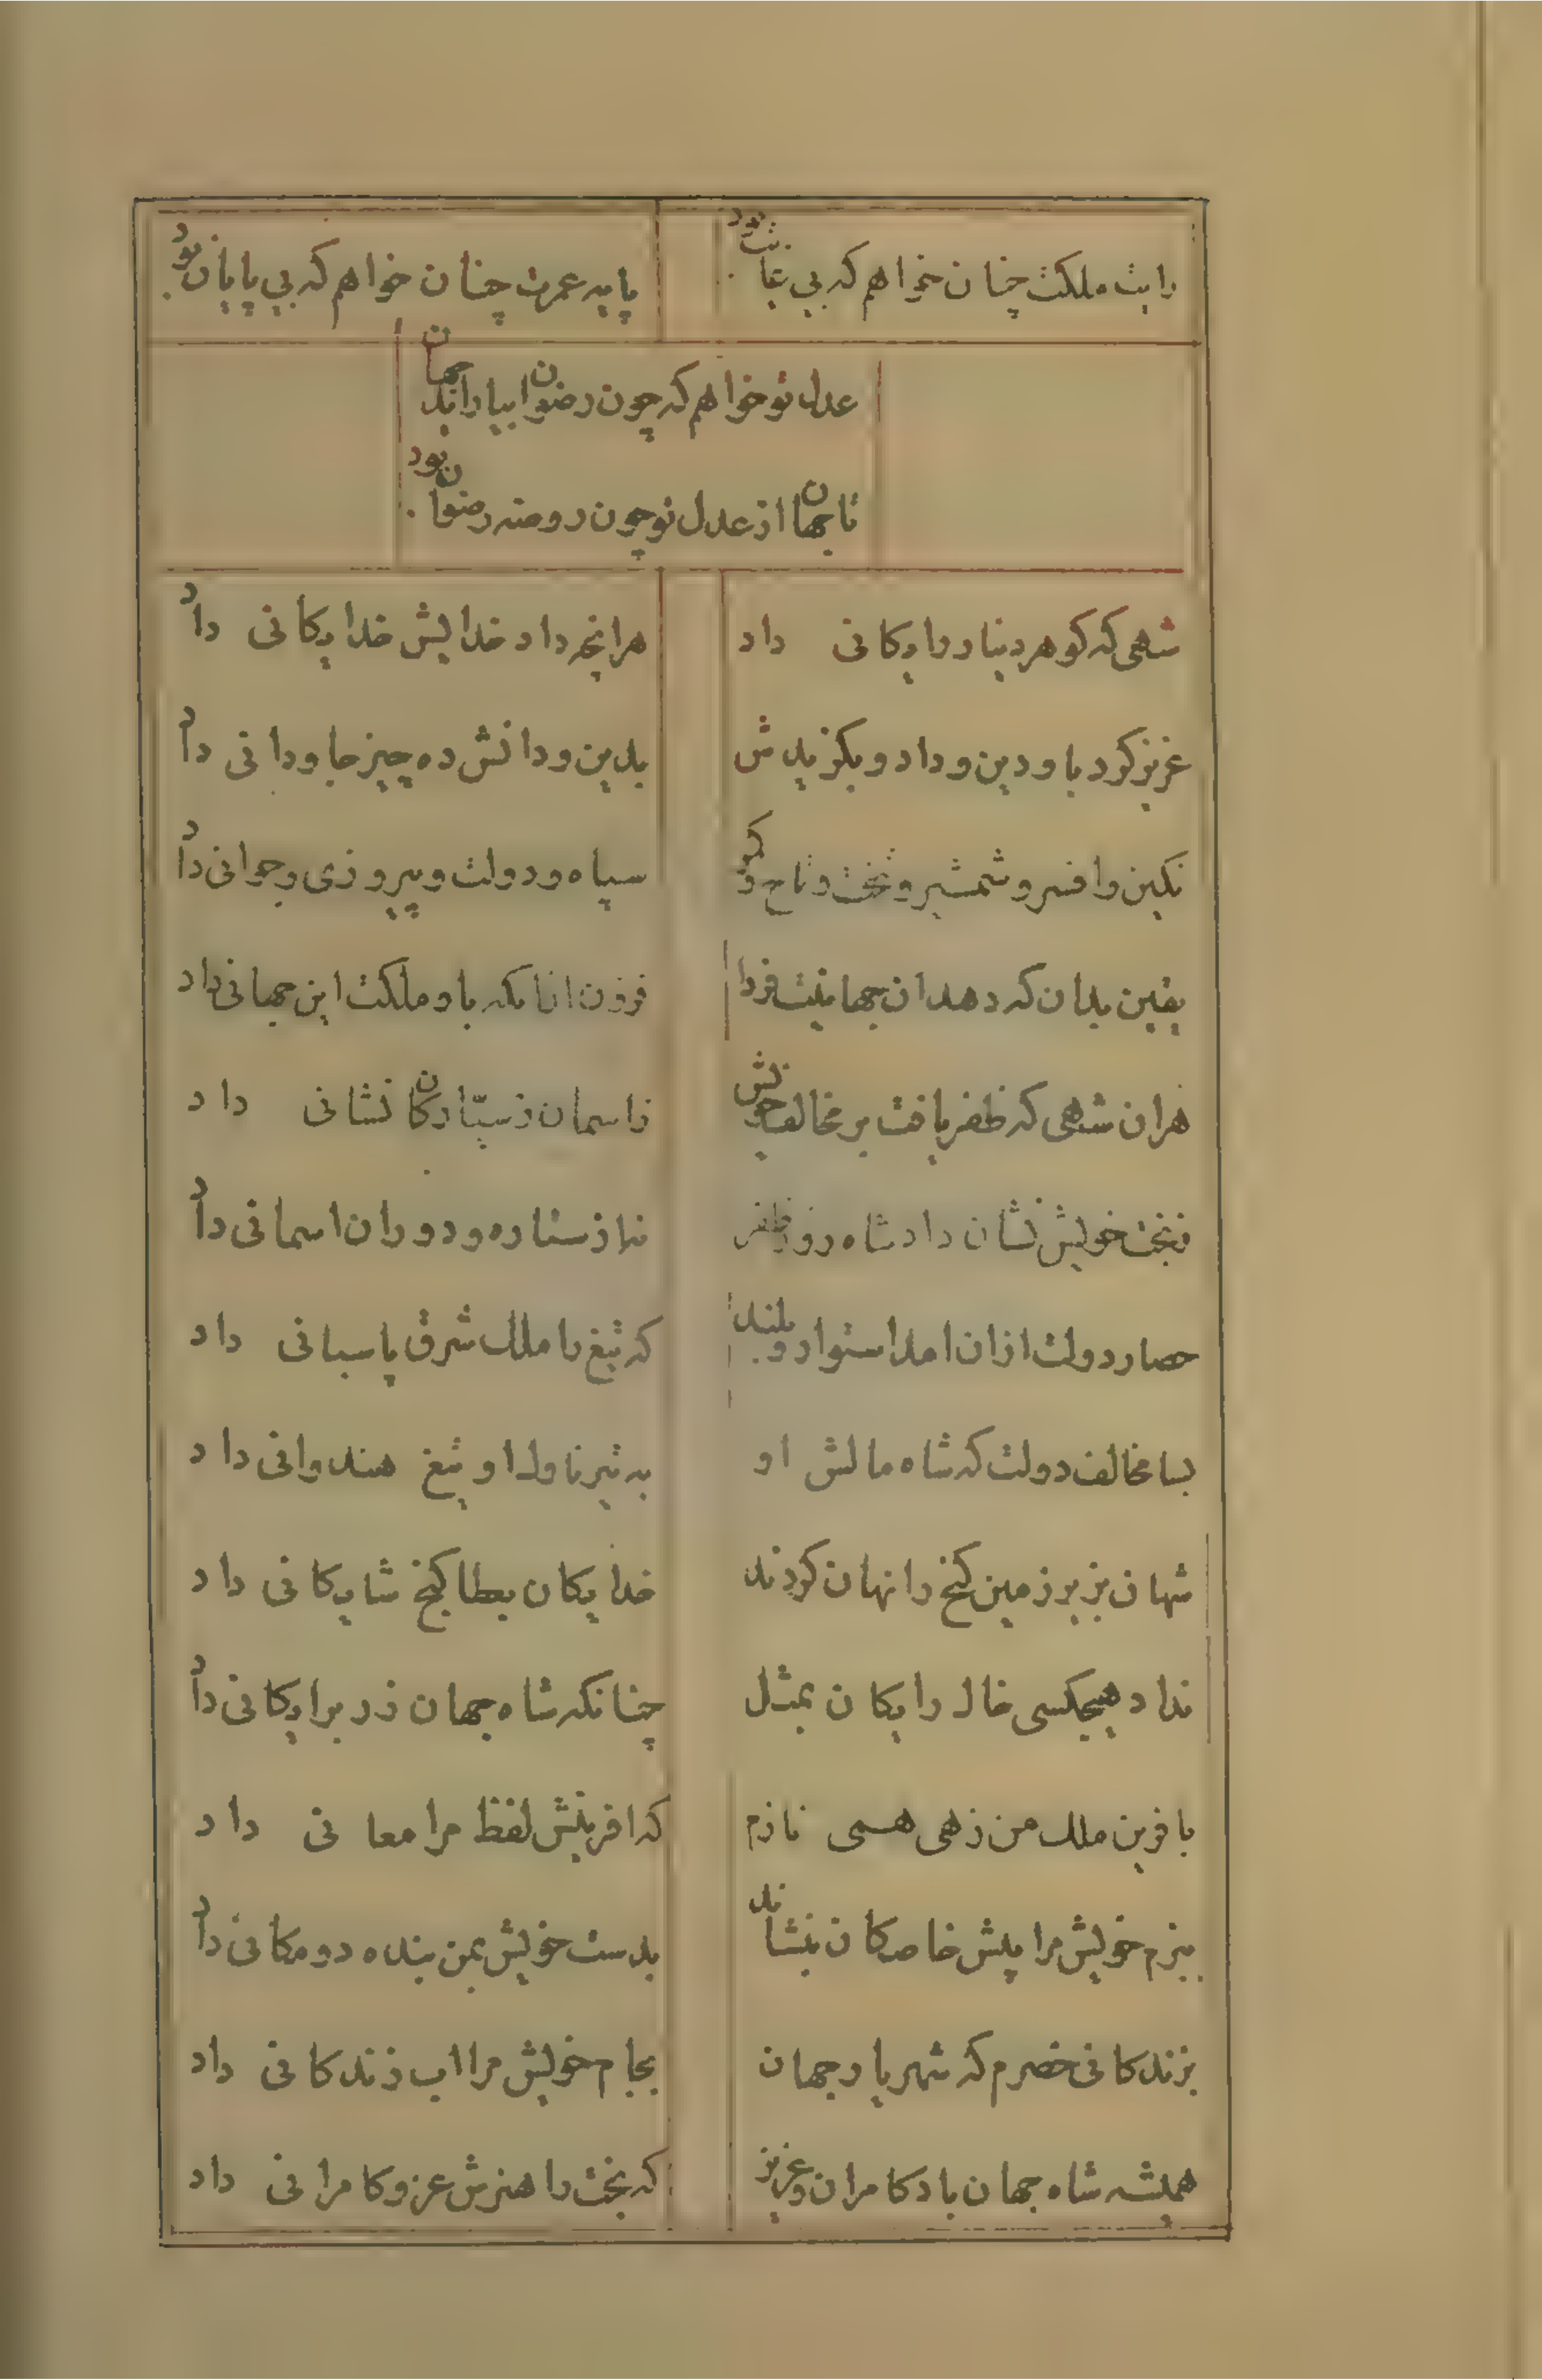 رایت ملکت چنان خواهم که بی غایت بود
پایه عمرت چنان خواهم که بی پایان بود
عدل تو خواهم که چون رضوان بیاراید جهان
تا جهان از عدل تو چون روضه رضوان بود
شهی که کوهر دینار را یکانی داد
هرانچه داد خدایش خدایکانی داد
عزیز کرد باو دین و داد و بکزیدش
بدین و دانش ده چیز جاودانی داد
نکین و افسر و شمشیر و تخت و تاج و کمر
سپاه و دولت و پیروزی و جوانی داد
یقین بدان که دهد ان جهانیت فردا
فزون انانکه باو ملکت این جهانی داد
هران شهی که ظفر یافت بر مخالف خویش
زاسمان ز سیّارکان نشانی داد
زبخت خویش نشان داد شاه روز ظفر
نه از ستاره و دوران اسمانی داد
حصار دولت ازان امد استوار و بلند
که تیغ را ملک شرق پاسبانی داد
بسا مخالف دولت که شاه مالش او
به تیر ناوک او تیغ هندوانی داد
شهان بزیر زمین کنج را نهان کردند
خدایکان بعطا کنج شایکانی داد
نداد هیچکسی خاک رایکان بمثل
چنانکه شاه جهان زر برایکانی داد
بافرین ملک من زهی همی نازم
که افرینش لفظ مرا معانی داد
ببزم خویش مرا پیش خاصکان بنشاند
بدست خویش بمن بنده دومکانی داد
بزندکانی خضرم که شهریار جهان
بجام خویش مرا اب زندکانی داد
همیشه شاه جهان باد کامران و عزیز
که بخت را هنرش عز و کامرانی داد